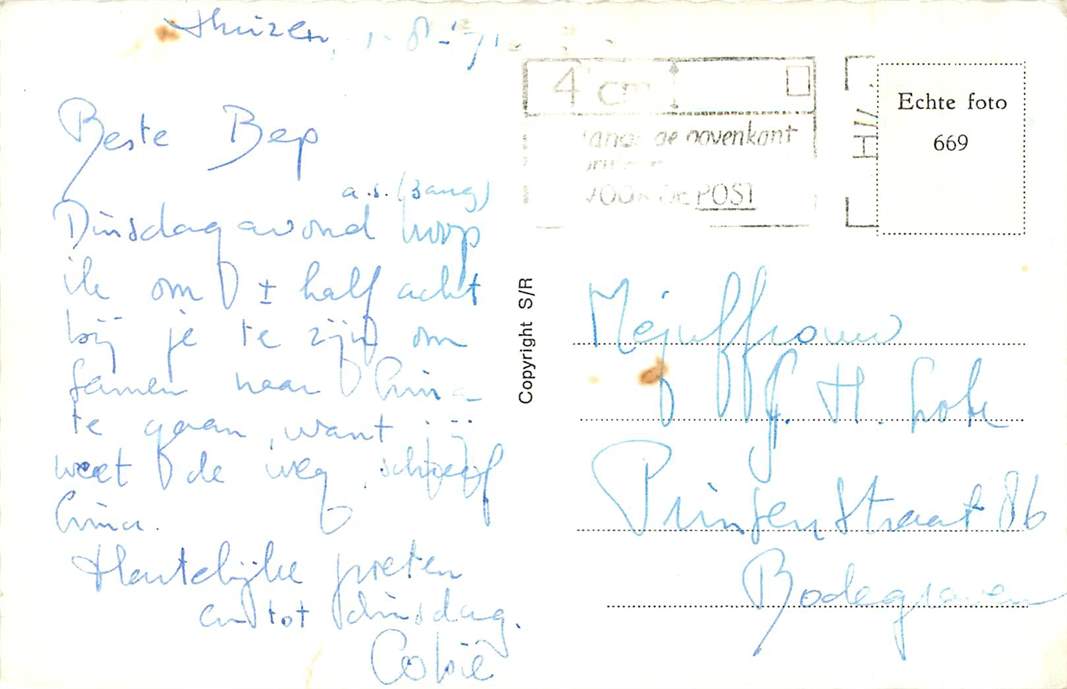 Huizen, 1-8-'71
Beste Bep
a.s. (3 aug)
Dinsdagavond hoop
ik om ± half acht
bij je te zijn om
samen naar
te gaan, want jij
weet de weg, schreef
Hartelijke groeten
en tot dinsdag.
Cobie
4 cm
langs de bovenkant
VOOR DE POST
Echte foto
669
Copyright S/R
Mejuffrouw
H.
Prinsenstraat 86
Bodegraven